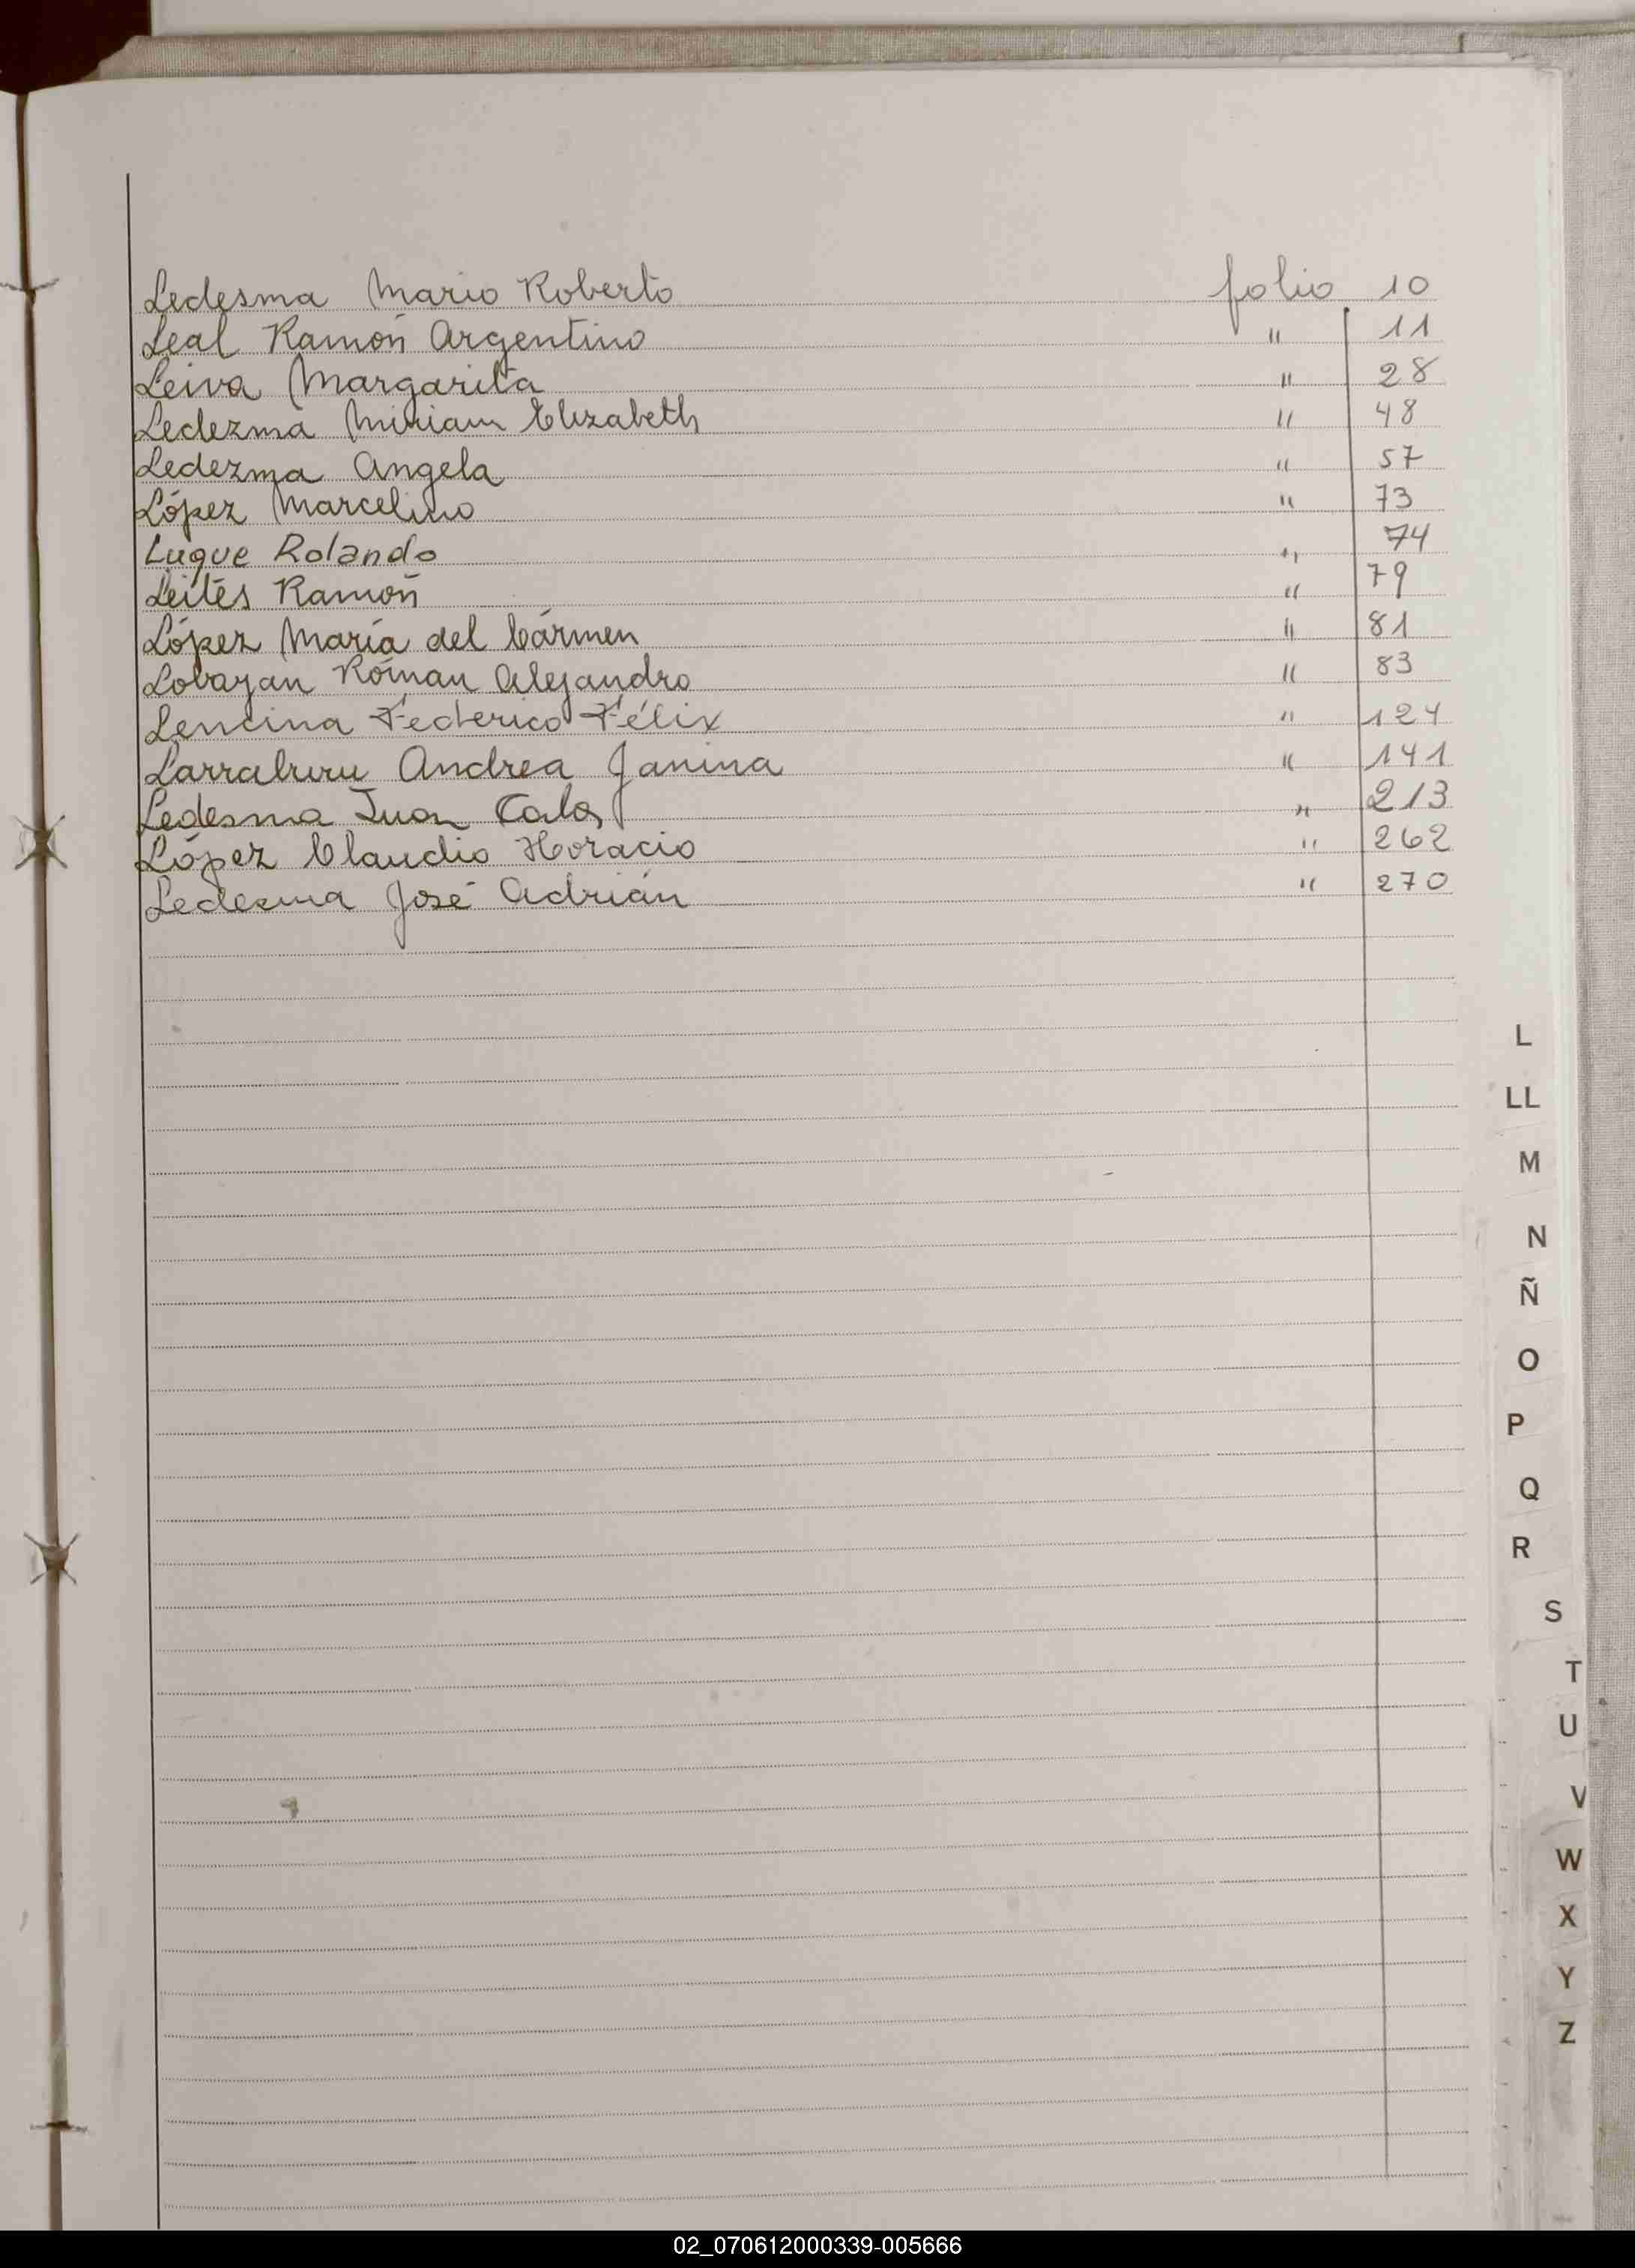 Ledesma Mario Roberto folio 10
Leal Ramón Argentino " 11
Leiva Margarita " 28
Ledezma Miriam Elizabeth " 48
Ledezma Angela " 57
López Marcelino " 73
Luque Rolando " 74
Leites Ramón " 79
López María del Cármen " 81
Lobayan Román Alejandro " 83
Lencina Federico Félix " 124
Larraburu Andrea Janina " 141
Ledesma Juan Carlos " 213
López Claudio Horacio " 262
Ledesma José Adrián " 270
L
LL
M
N
Ñ
O
P
Q
R
S
T
U
V
W
X
Y
Z
02_070612000339-005666